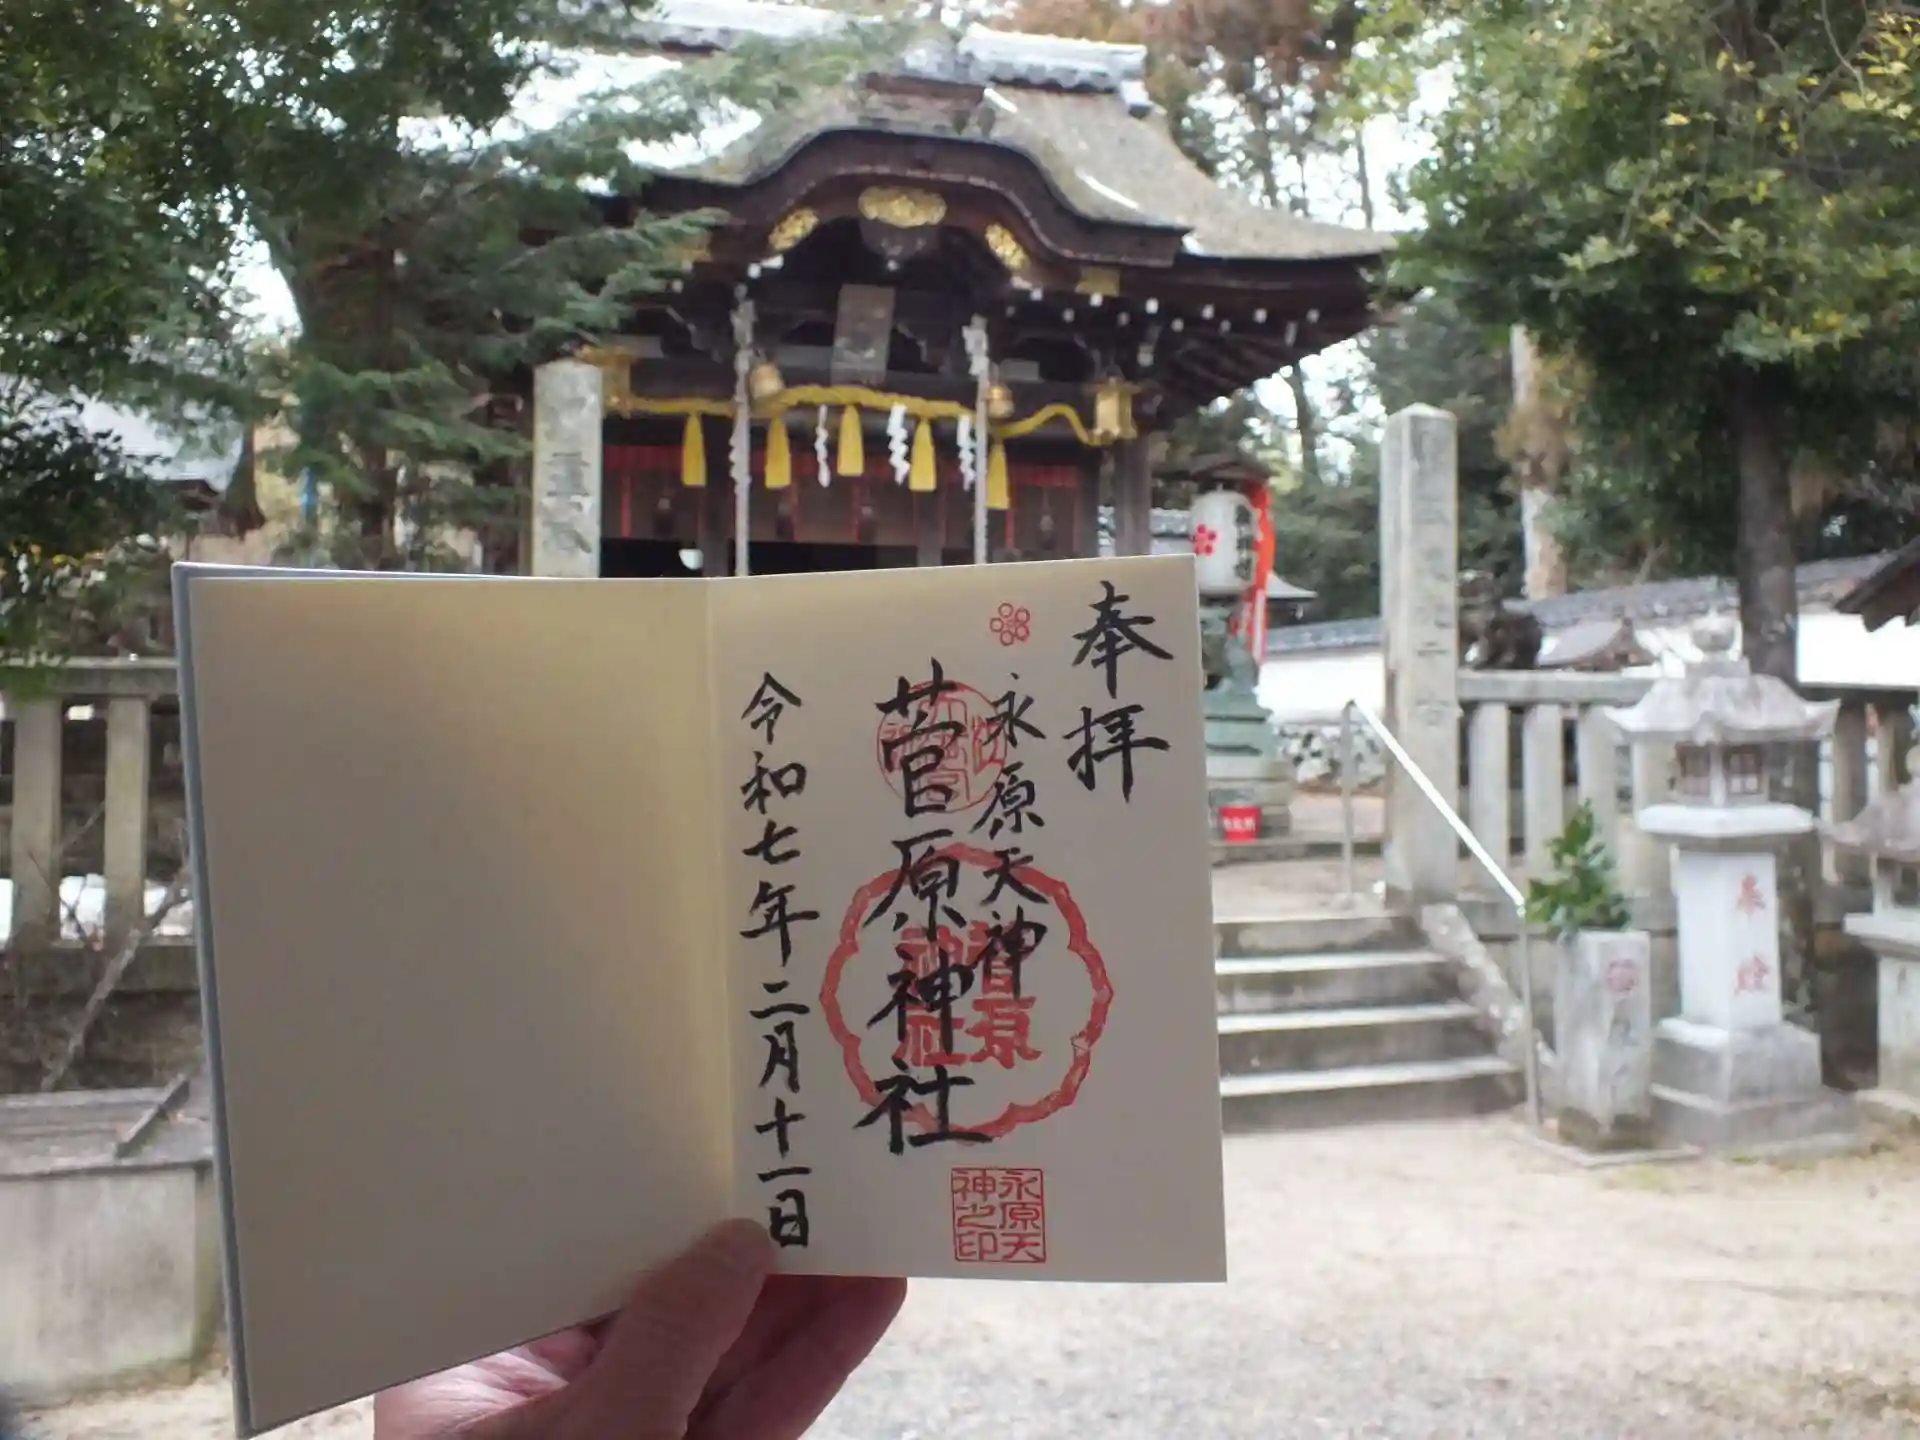 奉拝
永原天神
菅原神社
令和七年二月十一日
菅原
神社
永原天
神之印
奉燈